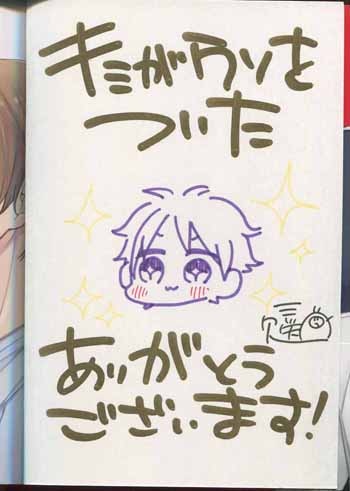 キミがウソを
ついた
ありがとう
ございます!